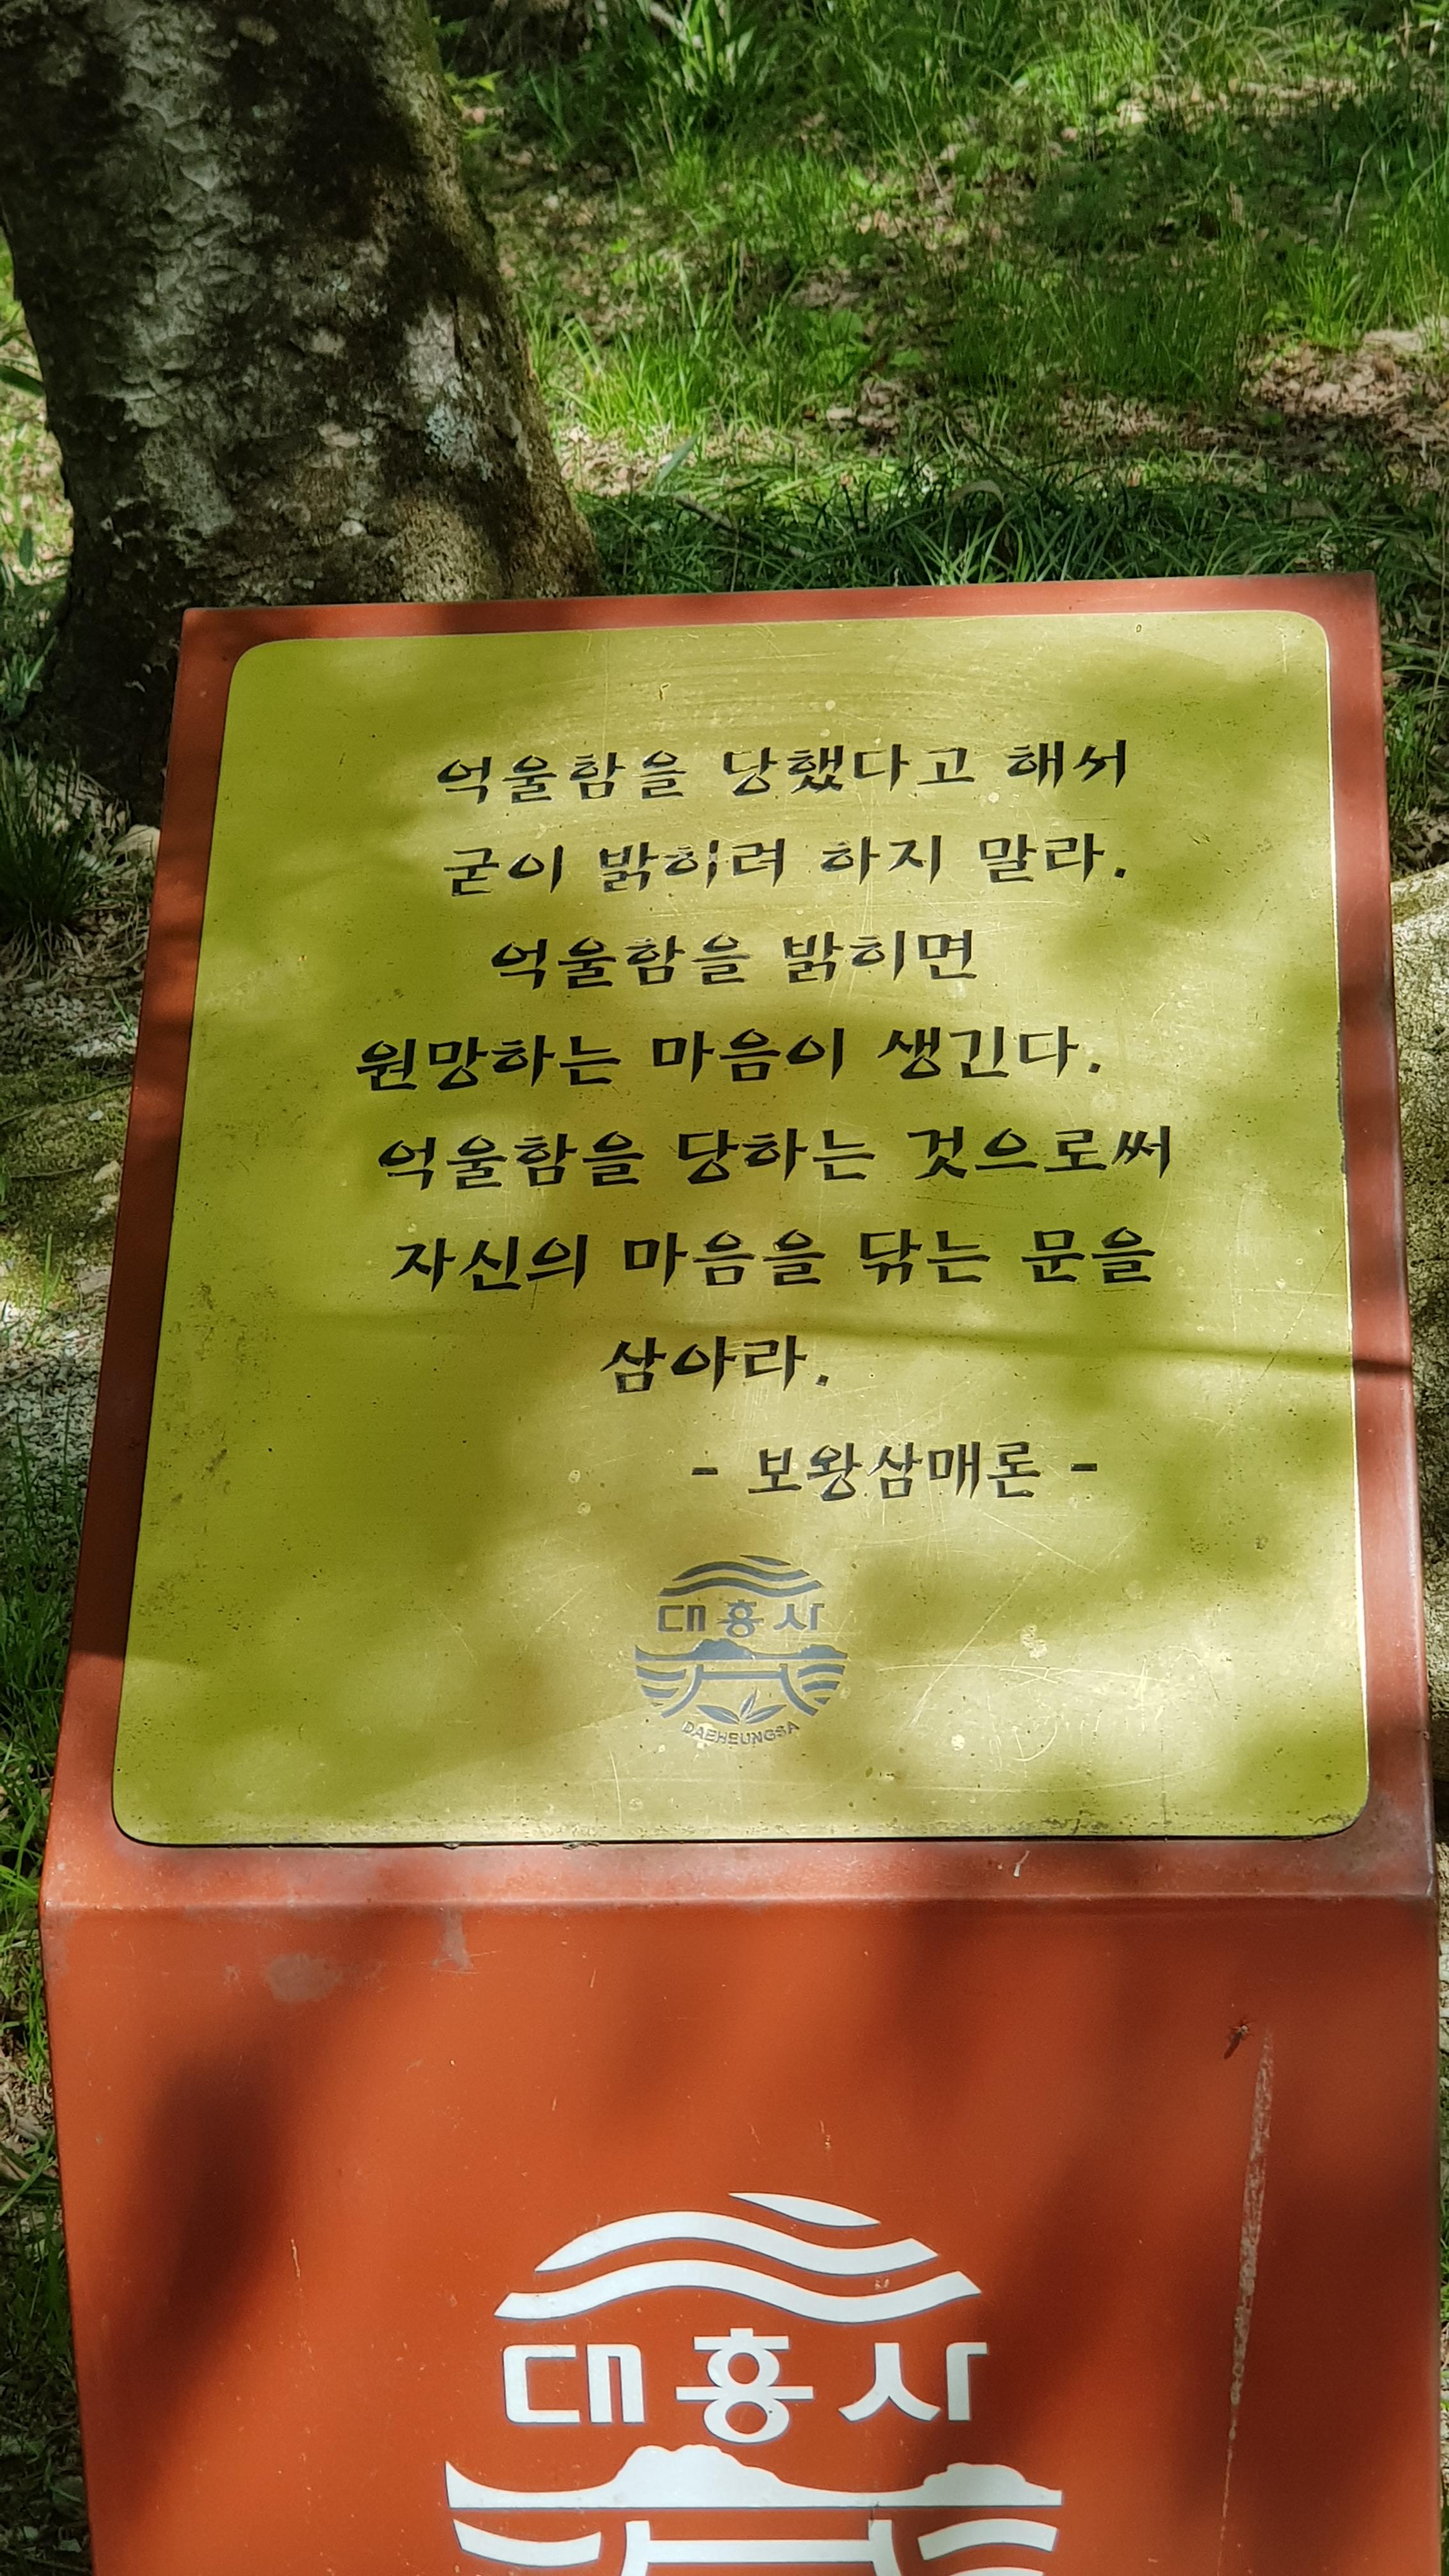 억울함을 당했다고 해서
굳이 밝히려 하지 말라.
억울함을 밝히면
원망하는 마음이 생긴다.
억울함을 당하는 것으로써
자신의 마음을 닦는 문을
삼아라.
- 보왕삼매론 -
대흥사
DAEHEUNGSA
대흥사